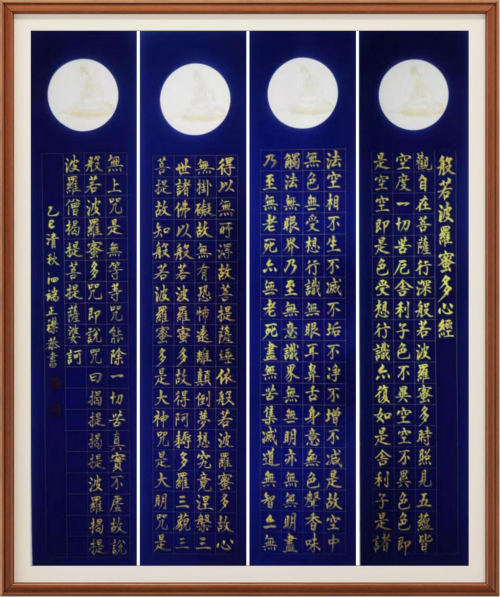 般若波羅蜜多心經
觀自在菩薩行深般若波羅蜜多時照見五蘊皆
空度一切苦厄舍利子色不異空空不異色色即
是空空即是色受想行識亦復如是舍利子是諸
法空相不生不滅不垢不淨不增不減是故空中
無色無受想行識無眼耳鼻舌身意無色聲香味
觸法無眼界乃至無意識界無無明亦無無明盡
乃至無老死亦無老死盡無苦集滅道無智亦無
得以無所得故菩提薩埵依般若波羅蜜多故心
無掛礙故無有恐怖遠離顛倒夢想究竟涅槃三
世諸佛以般若波羅蜜多故得阿耨多羅三藐三
菩提故知般若波羅蜜多是大神咒是大明咒是
無上咒是無等等咒能除一切苦真實不虛故說
般若波羅蜜多咒即說咒曰揭提揭提波羅揭提
波羅僧揭提菩提薩婆訶
乙巳清秋泗端正襟恭書